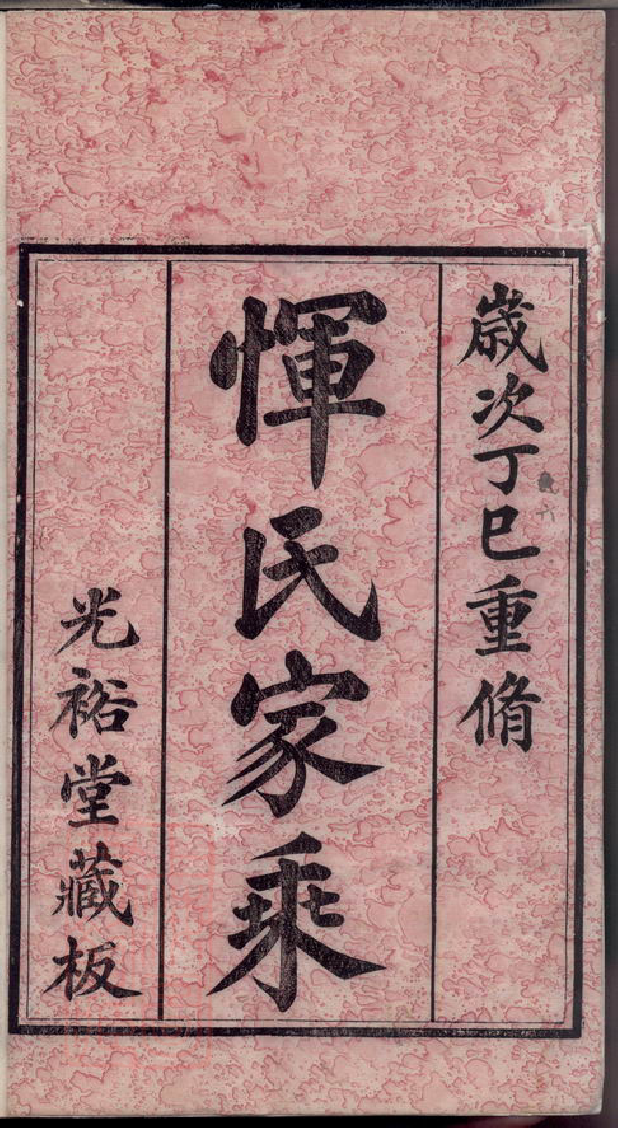 歲次丁巳重脩
惲氏家乘
光裕堂藏板